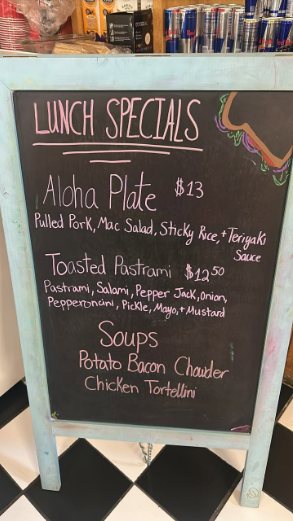 LUNCH SPECIALS
Aloha Plate $13
Pulled Pork, Mac Salad, Sticky Rice, + Teriyaki
Sauce
Toasted Pastrami $12.50
Pastrami, Salami, Pepper Jack, Onion,
Pepperoncini, Pickle, Mayo, + Mustard
Soups
Potato Bacon Chowder
Chicken Tortellini